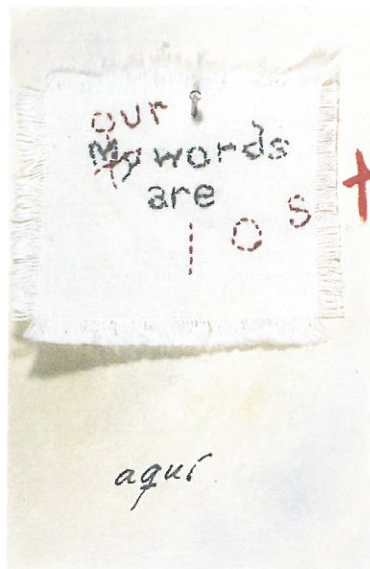 our
My words
are
los t
aquí